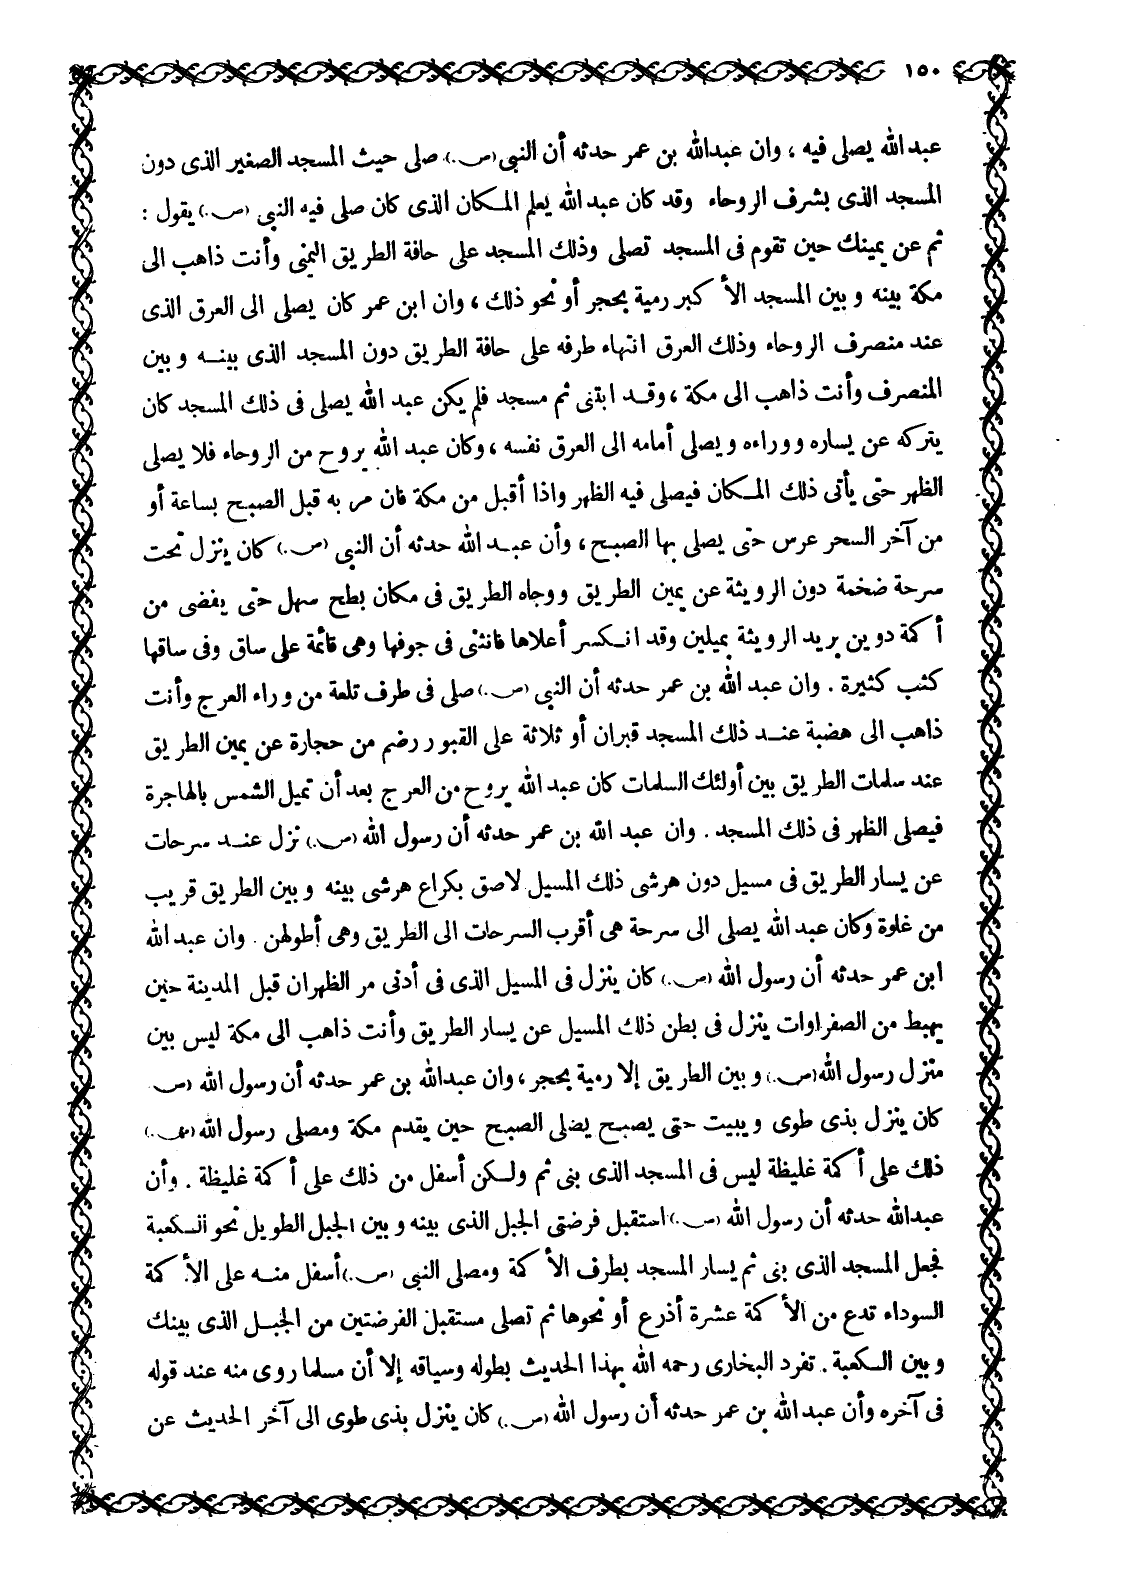 ١٥٠
عبد الله يصلى فيه ، وان عبدالله بن عمر حدثه أن النبى (ص.) صلى حيث المسجد الصغير الذى دون
المسجد الذى بشرف الروحاء وقد كان عبد الله يعلم المكان الذى كان صلى فيه النبى (ص.) يقول :
ثم عن يمينك حين تقوم فى المسجد تصلى وذلك المسجد على حافة الطريق اليمنى وأنت ذاهب الى
مكة بينه وبين المسجد الأكبر رمية بحجر أو نحو ذلك ، وان ابن عمر كان يصلى الى العرق الذى
عند منصرف الروحاء وذلك العرق انتهاء طرفه على حافة الطريق دون المسجد الذى بينه وبين
المنصرف وأنت ذاهب الى مكة ، وقد ابتنى ثم مسجد فلم يكن عبد الله يصلى فى ذلك المسجد كان
يتركه عن يساره ووراءه ويصلى أمامه الى العرق نفسه ، وكان عبد الله يروح من الروحاء فلا يصلى
الظهر حتى يأتى ذلك المكان فيصلى فيه الظهر واذا أقبل من مكة فان مر به قبل الصبح بساعة أو
من آخر السحر عرس حتى يصلى بها الصبح ، وأن عبد الله حدثه أن النبى (ص.) كان ينزل تحت
سرحة ضخمة دون الرويثة عن يمين الطريق ووجاه الطريق فى مكان بطح سهل حتى يفضى من
أكمة دوين بريد الرويثة بميلين وقد انكسر أعلاها فانثنى فى جوفها وهى قائمة على ساق وفى ساقها
كثب كثيرة . وان عبد الله بن عمر حدثه أن النبى (ص.) صلى فى طرف تلعة من وراء العرج وأنت
ذاهب الى هضبة عند ذلك المسجد قبران أو ثلاثة على القبور رضم من حجارة عن يمين الطريق
عند سلمات الطريق بين أولئك السلمات كان عبد الله يروح من العرج بعد أن تميل الشمس بالهاجرة
فيصلى الظهر فى ذلك المسجد . وان عبد الله بن عمر حدثه أن رسول الله (ص.) نزل عند سرحات
عن يسار الطريق فى مسيل دون هرشى ذلك المسيل لاصق بكراع هرشى بينه وبين الطريق قريب
من غلوة وكان عبد الله يصلى الى سرحة هى أقرب السرحات الى الطريق وهى أطولهن . وان عبد الله
ابن عمر حدثه أن رسول الله (ص.) كان ينزل فى المسيل الذى فى أدنى مر الظهران قبل المدينة حين
يهبط من الصفراوات ينزل فى بطن ذلك المسيل عن يسار الطريق وأنت ذاهب الى مكة ليس بين
منزل رسول الله (ص.) وبين الطريق إلا رمية بحجر ، وان عبدالله بن عمر حدثه أن رسول الله (ص
كان ينزل بذى طوى ويبيت حتى يصبح يضلى الصبح حين يقدم مكة ومصلى رسول الله (ص.)
ذلك على أكمة غليظة ليس فى المسجد الذى بنى ثم ولكن أسفل من ذلك على أكمة غليظة . وأن
عبدالله حدثه أن رسول الله (ص.) استقبل فرضتى الجبل الذى بينه وبين الجبل الطويل نحو الكعبة
فجعل المسجد الذى بنى ثم يسار المسجد بطرف الأكمة ومصلى النبى (ص.) أسفل منه على الأكمة
السوداء تدع من الأكمة عشرة أذرع أو نحوها ثم تصلى مستقبل الفرضتين من الجبل الذى بينك
وبين الكعبة . تفرد البخارى رحمه الله بهذا الحديث بطوله وسياقه إلا أن مسلما روى منه عند قوله
فى آخره وأن عبد الله بن عمر حدثه أن رسول الله (ص.) كان ينزل بذى طوى الى آخر الحديث عن